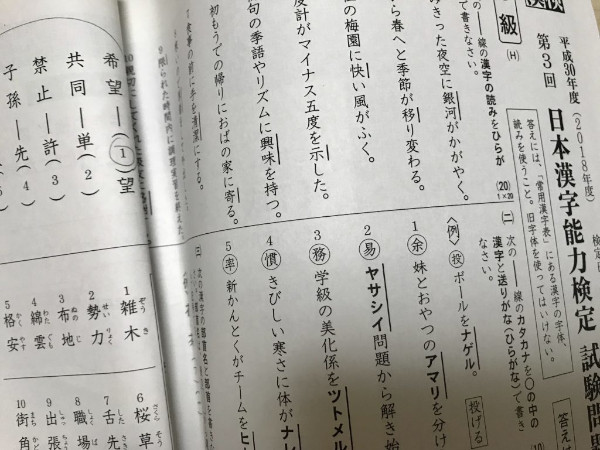 平成30年度
(2018年度)
第3回
日本漢字能力検定
試験問題
級
(H)
答えには、「常用漢字表」にある漢字の字体、
読みを使うこと。旧字体を使ってはいけない。
線の漢字の読みをひらが
で書きなさい。
(20)
1×20
みきった夜空に銀河がかがやく。
から春へと季節が移り変わる。
の梅園に快い風がふく。
度計がマイナス五度を示した。
句の季語やリズムに興味を持つ。
初もうでの帰りにおばの家に寄る。
食事の前に手を清潔にする。
(二)
次の――線のカタカナを〇の中の
漢字と送りがな(ひらがな)で書き
なさい。
(10)
〈例〉(投)ボールをナゲル。
投げる
1(余)妹とおやつのアマリを分け
2(易)ヤサシイ問題から解き始
3(務)学級の美化係をツトメル
4(慣)きびしい寒さに体がナレ
5(率)新かんとくがチームをヒ
希望―(1)望
共同―単(2)
禁止―許(3)
子孫―先(4)
1雑木
ぞうき
2勢力
せいりょく
3布地
ぬのじ
4綿雲
わたぐも
5格安
かくやす
6桜草
さくらそう
7舌先
したさき
8職場
しょくば
9出張
10街角
まちかど